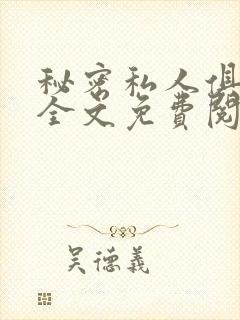 秘密私人俱
全文免費閱
吴德義